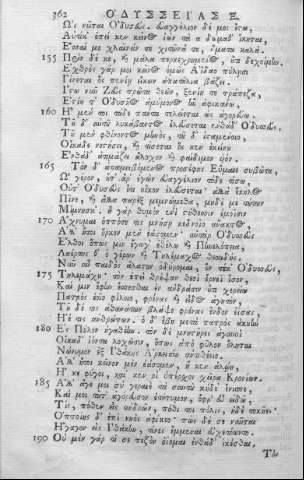 362 ΟΔΥΣΣΕΙΑΣ Ξ.
Ὡς νεῖται Ὀδυσεύς. εὐαγγέλιον δέ μοι ἔστω,
Αὐτίκ' ἐπεί κεν κεῖνος ἰὼν τὰ ἃ δώμαθ' ἵκηται,
Ἕσσαι με χλαῖνάν τε χιτῶνά τε, εἵματα καλά.
155 Πρὶν δέ κε, καὶ μάλα περ κεχρημένος, οὔ τι δεχοίμην.
Ἐχθρὸς γάρ μοι κεῖνος ὁμῶς Ἀΐδαο πύλησι
Γίνεται ὃς πενίῃ εἴκων ἀπατήλια βάζει.
Ἴστω νῦν Ζεὺς πρῶτα θεῶν, ξενίη τε τράπεζα,
Ἑστίη τ' Ὀδυσῆος ἀμύμονος ἣν ἀφικάνω,
160 Ἦ μέν τοι τάδε πάντα τελείεται ὡς ἀγορεύω.
Τοῦ δ' αὐτοῦ λυκάβαντος ἐλεύσεται ἐνθάδ' Ὀδυσσεύς.
Τοῦ μὲν φθίνοντος μηνὸς, τοῦ δ' ἱσταμένοιο
Οἴκαδε νοστήσει, καὶ τίσεται ὅς κεν ἐκείνου
Ἐνθάδ' ἀτιμάζει ἄλοχον καὶ φαίδιμον υἱόν.
165 Τὸν δ' ἀπαμειβόμενος προσέφης Εὔμαιε συβῶτα,
Ὦ γέρον, οὔτ' ἄρ' ἐγὼν εὐαγγέλιον τόδε τίσω,
Οὔτ' Ὀδυσεὺς ἔτι οἶκον ἐλεύσεται· ἀλλὰ ἕκηλος
Πῖνε, καὶ ἄλλα παρὲξ μεμνώμεθα, μηδέ με τούτων
Μίμνησκ'. ἦ γὰρ θυμὸς ἐνὶ στήθεσσιν ἐμοῖσιν
170 Ἄχνυμαι ὁππότε τις μνήσῃ κεδνοῖο ἄνακτος.
Ἀλλ' ἤτοι ὅρκον μὲν ἐάσομεν· αὐτὰρ Ὀδυσσεὺς
Ἔλθοι ὅπως μιν ἔγωγ' ἐθέλω καὶ Πηνελόπεια,
Λαέρτης θ' ὁ γέρων καὶ Τηλέμαχος θεοειδής.
Νῦν αὖ παιδὸς ἄλαστον ὀδύρομαι, ὃν τέκ' Ὀδυσσεὺς
175 Τηλεμάχου· τὸν ἐπεὶ θρέψαν θεοὶ ἔρνεϊ ἶσον,
Καί μιν ἔφην ἔσσεσθαι ἐν ἀνδράσιν οὔτι χερείω
Πατρὸς ἑοῖο φίλοιο, φρένας καὶ εἶδος ἀγητόν,
Τὸν δέ τις ἀθανάτων βλάψε φρένας ἔνδον ἐΐσας,
Ἠέ τις ἀνθρώπων. ὁ δ' ἔβη μετὰ πατρὸς ἀκουὴν
180 Ἐς Πύλον ἠγαθέην. τὸν δὲ μνηστῆρες ἀγαυοὶ
Οἴκαδ' ἰόντα λοχῶσιν, ὅπως ἀπὸ φῦλον ὄληται
Νώνυμον ἐξ Ἰθάκης Ἀρκεισίου ἀντιθέοιο.
Ἀλλ' ἤτοι κεῖνον μὲν ἐάσομεν, ἤ κεν ἁλώῃ,
Ἤ κε φύγοι, καί κέν οἱ ὑπέρσχοι χεῖρα Κρονίων.
185 Ἀλλ' ἄγε μοι σὺ γεραιὲ τὰ σαυτοῦ κήδε' ἔνισπε,
Καί μοι τοῦτ' ἀγόρευσον ἐτήτυμον, ὄφρ' εὖ εἰδῶ,
Τίς, πόθεν εἶς ἀνδρῶν, πόθι τοι πόλις, ἠδὲ τοκῆες.
Ὁπποίης δ' ἐπὶ νηὸς ἀφίκεο· πῶς δέ σε ναῦται
Ἤγαγον εἰς Ἰθάκην, τίνες ἔμμεναι εὐχετόωντο.
190 Οὐ μὲν γάρ τί σε πεζὸν ὀΐομαι ἐνθάδ' ἱκέσθαι.
Τὸν